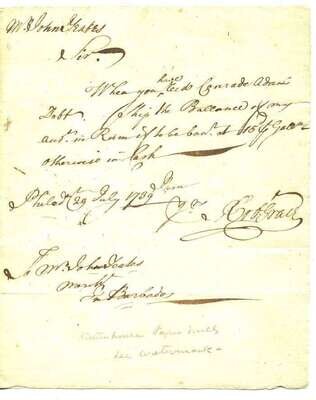 Mr John Yeates
Sir
When you have Recd Conrade Adams
Debt. Ship the Ballance of my
acct. in Rum if to be had. at 15d ⅌ Gallon
otherwise in Cash
Philada 29 July 1739 I am
Yrs Robt Grace
To Mr John Yeates
Mercht
In Barbados
Rittenhouse Paper Mill
See watermark -